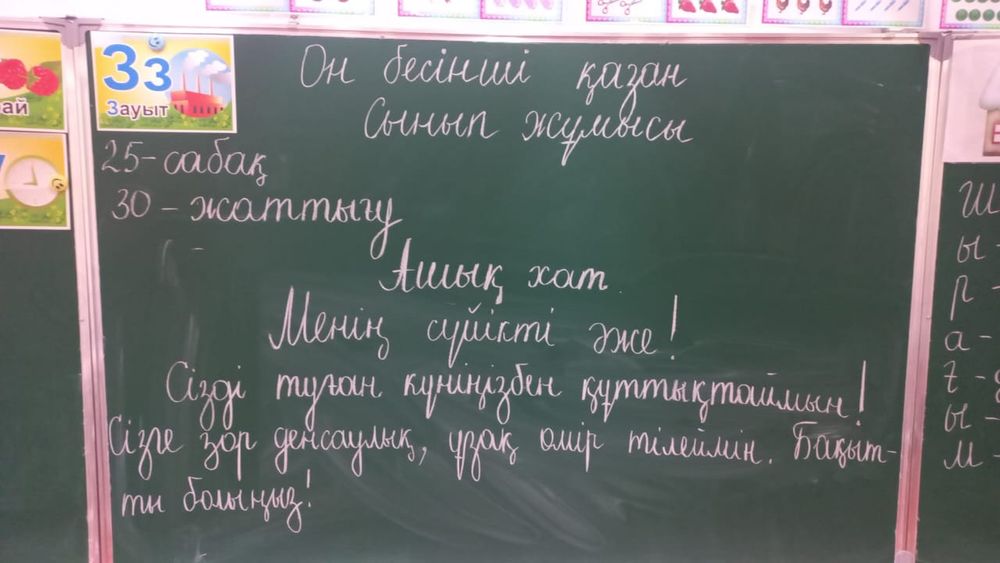 Зз
Зауыт
ай
Он бесінші қазан
Сынып жұмысы
25-сабақ
30-жаттығу
Ашық хат
Менің сүйікті әже!
Сізді туған күніңізбен құттықтаймын!
Сізге зор денсаулық, ұзақ өмір тілеймін. Бақыт-
ты болыңыз!
Ш
ы -
р -
а -
7 -
ы -
м -